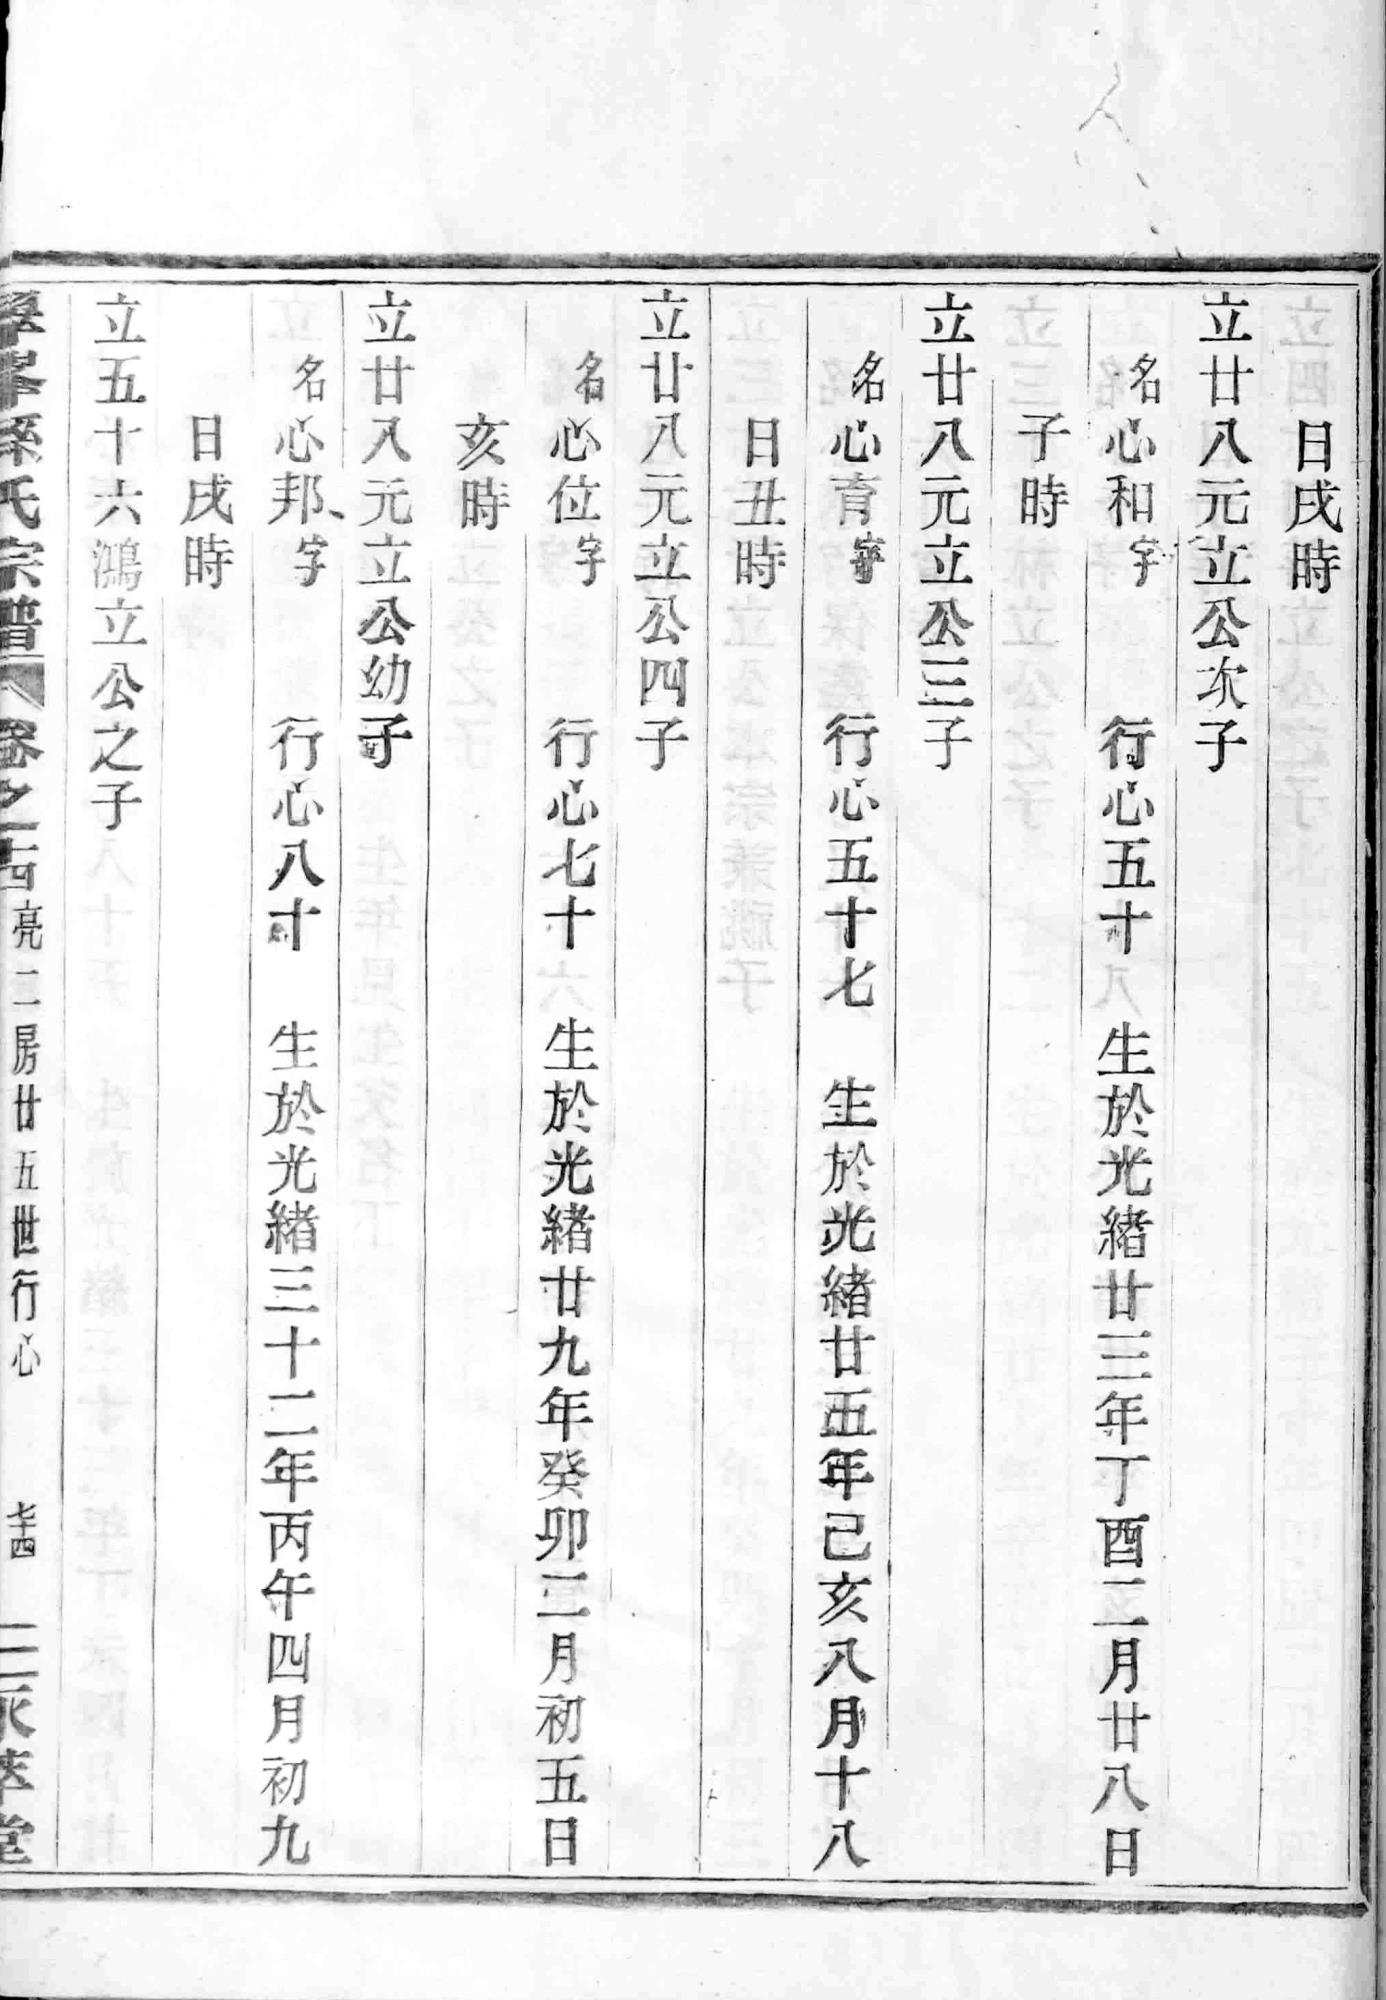 日戌時
立廿八元立公次子
名心和字 行心五十 生於光緒廿三年丁酉二月廿八日
子時
立廿八元立公三子
名心育字 行心五十七 生於光緒廿五年己亥八月十八
日丑時
立廿八元立公四子
名心位字 行心七十 生於光緒廿九年癸卯三月初五日
亥時
立廿八元立公幼子
名心邦字 行心八十 生於光緒三十二年丙午四月初九
日戌時
立五十六鴻立公之子
孫氏宗譜 卷之十四 亮二房廿五世行心 七十四 堂